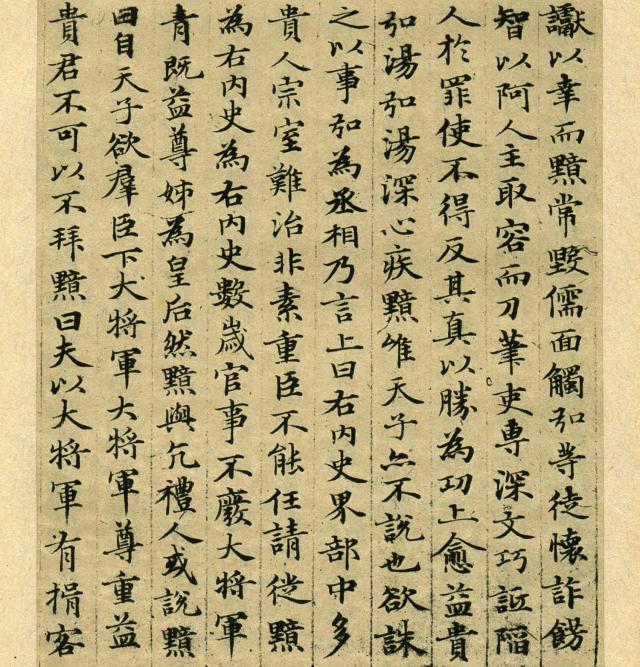 讞以幸而黯常毀儒面觸弘等徒懷詐飾
智以阿人主取容而刀筆吏專深文巧詆陷
人於罪使不得反其真以勝為功上愈益貴
弘湯弘湯深心疾黯唯天子亦不說也欲誅
之以事弘為丞相乃言上曰右內史界部中多
貴人宗室難治非素重臣不能任請徙黯
為右內史為右內史數歲官事不廢大將軍
青既益尊姊為皇后然黯與亢禮人或說黯
曰自天子欲羣臣下大將軍大將軍尊重益
貴君不可以不拜黯曰夫以大將軍有揖客